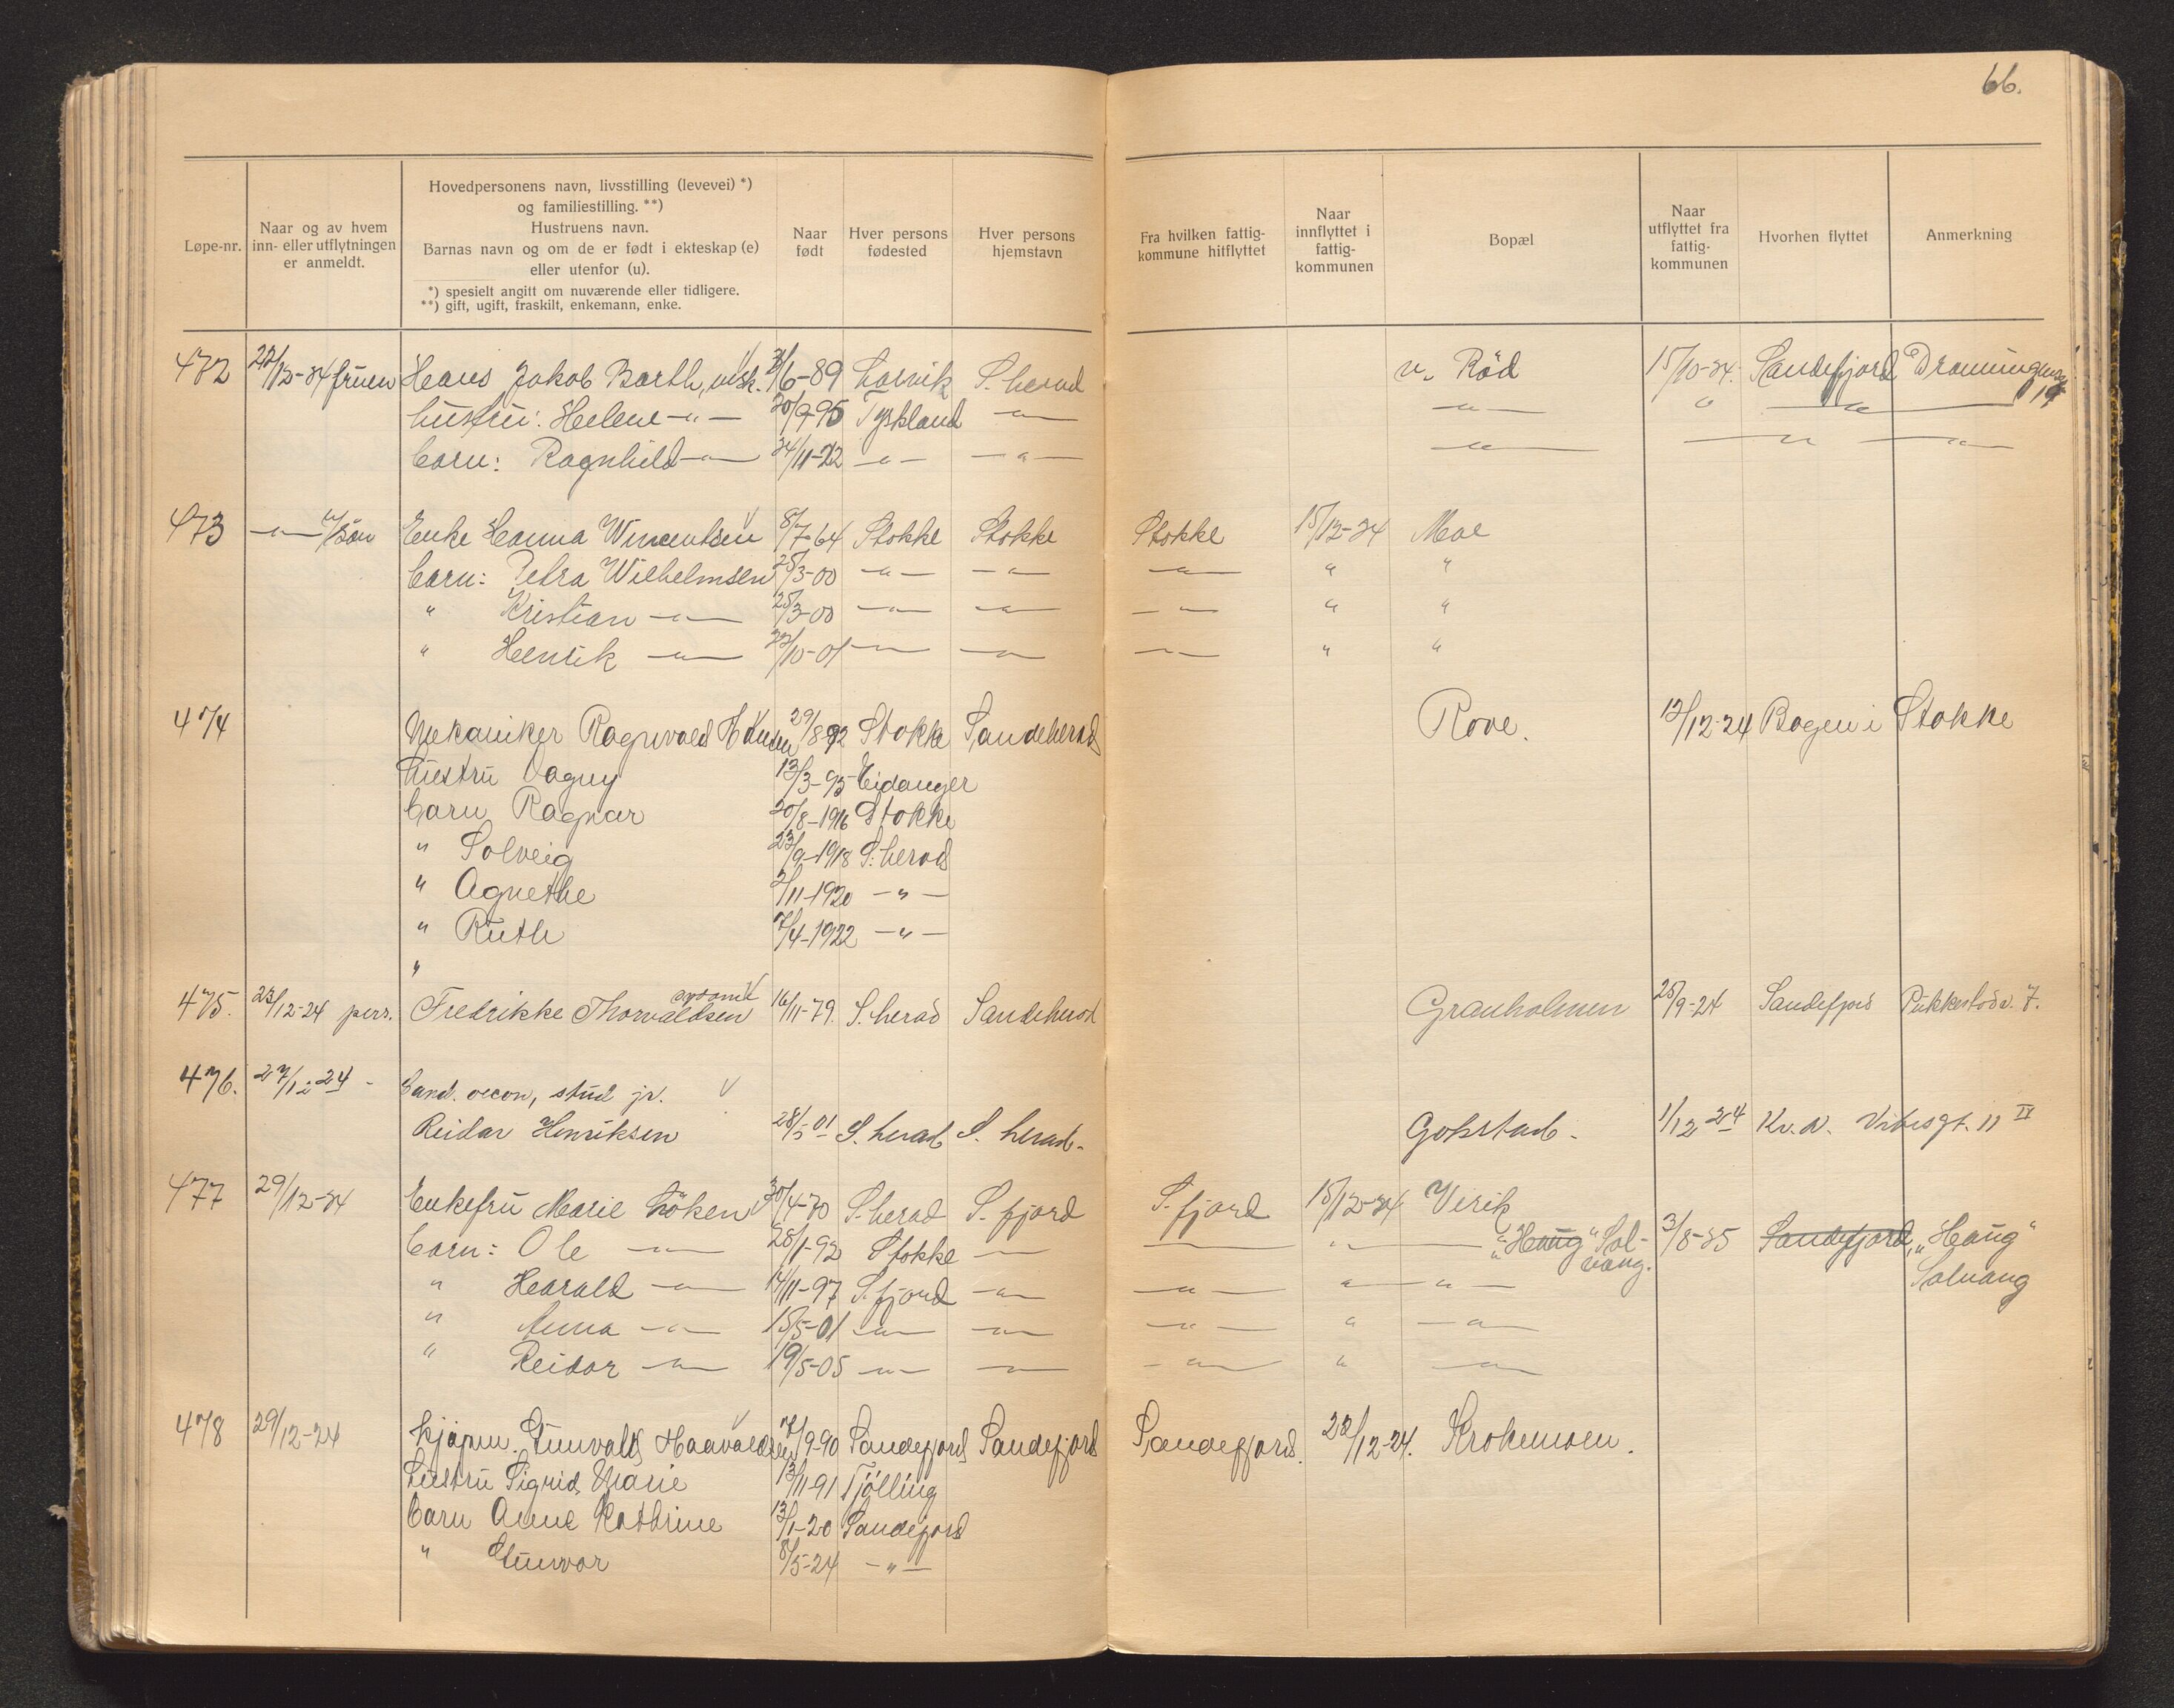 66.
Løpe-nr.
Naar og av hvem
inn- eller utflytningen
er anmeldt.
Hovedpersonens navn, livsstilling (levevei) *)
og familiestilling. **)
Hustruens navn.
Barnas navn og om de er født i ekteskap (e)
eller utenfor (u).
*) spesielt angitt om nuværende eller tidligere.
**) gift, ugift, fraskilt, enkemann, enke.
Naar
født
Hver persons
fødested
Hver persons
hjemstavn
Fra hvilken fattig-
kommune hitflyttet
Naar
innflyttet i
fattig-
kommunen
Bopæl
Naar
utflyttet fra
fattig-
kommunen
Hvorhen flyttet
Anmerkning
472 22/12-24 fruen Hans Jakob Barth, /6-89 Larvik S. herad Rød 15/10-24. Sandefjord Dronningens
hustru: Helene -"- 20/9-95 Tyskland -"- -"- " -"-
barn: Ragnhild -"- 24/11-22 -"- -"- -"- -"- -"-
473 -"- Enke Hanna Wincentsen 8/7-64 Stokke Stokke Stokke 15/12-24 Moe
barn: Petra Wilhelmsen 25/3-00 -"- -"- -"- " "
" Kristian -"- 25/3-00 -"- -"- -"- " "
" Henrik -"- 22/10-01 -"- -"- -"- " "
474 Mekaniker Ragnvald 29/8 92 Stokke Sandeherad Rove. 12/12-24 Bogen i Stokke
hustru Dagny 13/3-95 Eidanger
barn Ragnar 20/8-1916 Stokke
" Solveig 23/9-1918 S. herad
" Agnethe 2/11-1920 -"-
" Ruth 7/4-1922 -"-
"
475. 23/12-24 pers. Fredrikke Thorvaldsen 16/11-79. S. herad Sandeherad Granholmen 25/9-24 Sandefjord Pukkestadv. 7.
476. 27/12 24 - Cand. oecon, stud jr.
Reidar Henriksen 28/5 01 S. herad S. herad - Gokstad - 1/12 24 Kr. a. Vibesgt. 11 II
477 29/12-24 Enkefru Marie Löken 30/4-70 S. herad S. fjord S. fjord 15/12-24 Virik
barn: Ole -"- 28/1-92 Stokke -"- -"- -"- "Haug" Sol- 3/8-25 Sandefjord, "Haug"
vang. Solvang
" Harald -"- 14/11-97 S. fjord -"- -"- " -"-
" Anna -"- 15/5-01 -"- -"- -"- " -"-
" Reidar -"- 19/5-05 -"- -"- -"- " -"-
478 29/12-24 Kjøpm. Gunvald Haavaldsen 7/9-90 Sandefjord Sandefjord Sandefjord. 22/12-24. Krokemoen.
Hustru Sigrid Marie 13/11-91 Tjølling
barn Anne Kathrine 13/1-20 Sandefjord
" Gunvor 8/5-24 -"-